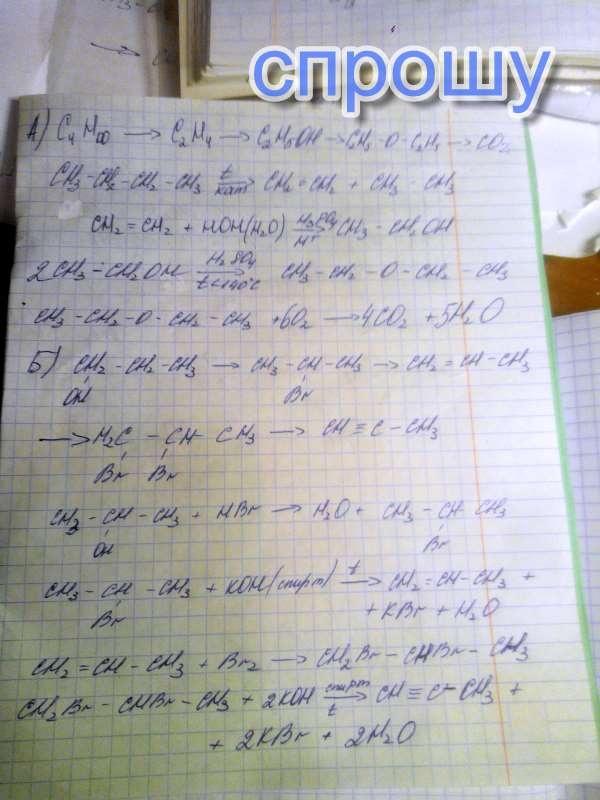 спрошу
А) C4H10 → C2H4 → C2H5OH → C2H5-O-C2H5 → CO2
CH3-CH2-CH2-CH3 t/кат → CH2=CH2 + CH3-CH3
CH2=CH2 + HOH(H2O) H3PO4/H+ → CH3-CH2OH
2CH3-CH2OH H2SO4/t<140°C → CH3-CH2-O-CH2-CH3
CH3-CH2-O-CH2-CH3 + 6O2 → 4CO2 + 5H2O
Б) CH2-CH2-CH3 → CH3-CH-CH3 → CH2=CH-CH3
OH Br
→ H2C-CH-CH3 → CH≡C-CH3
Br Br
CH3-CH-CH3 + HBr → H2O + CH3-CH CH3
OH Br
CH3-CH-CH3 + KOH(спирт) t → CH2=CH-CH3 +
Br + KBr + H2O
CH2=CH-CH3 + Br2 → CH2Br-CHBr-CH3
CH2Br-CHBr-CH3 + 2KOH спирт/t → CH≡C-CH3 +
+ 2KBr + 2H2O